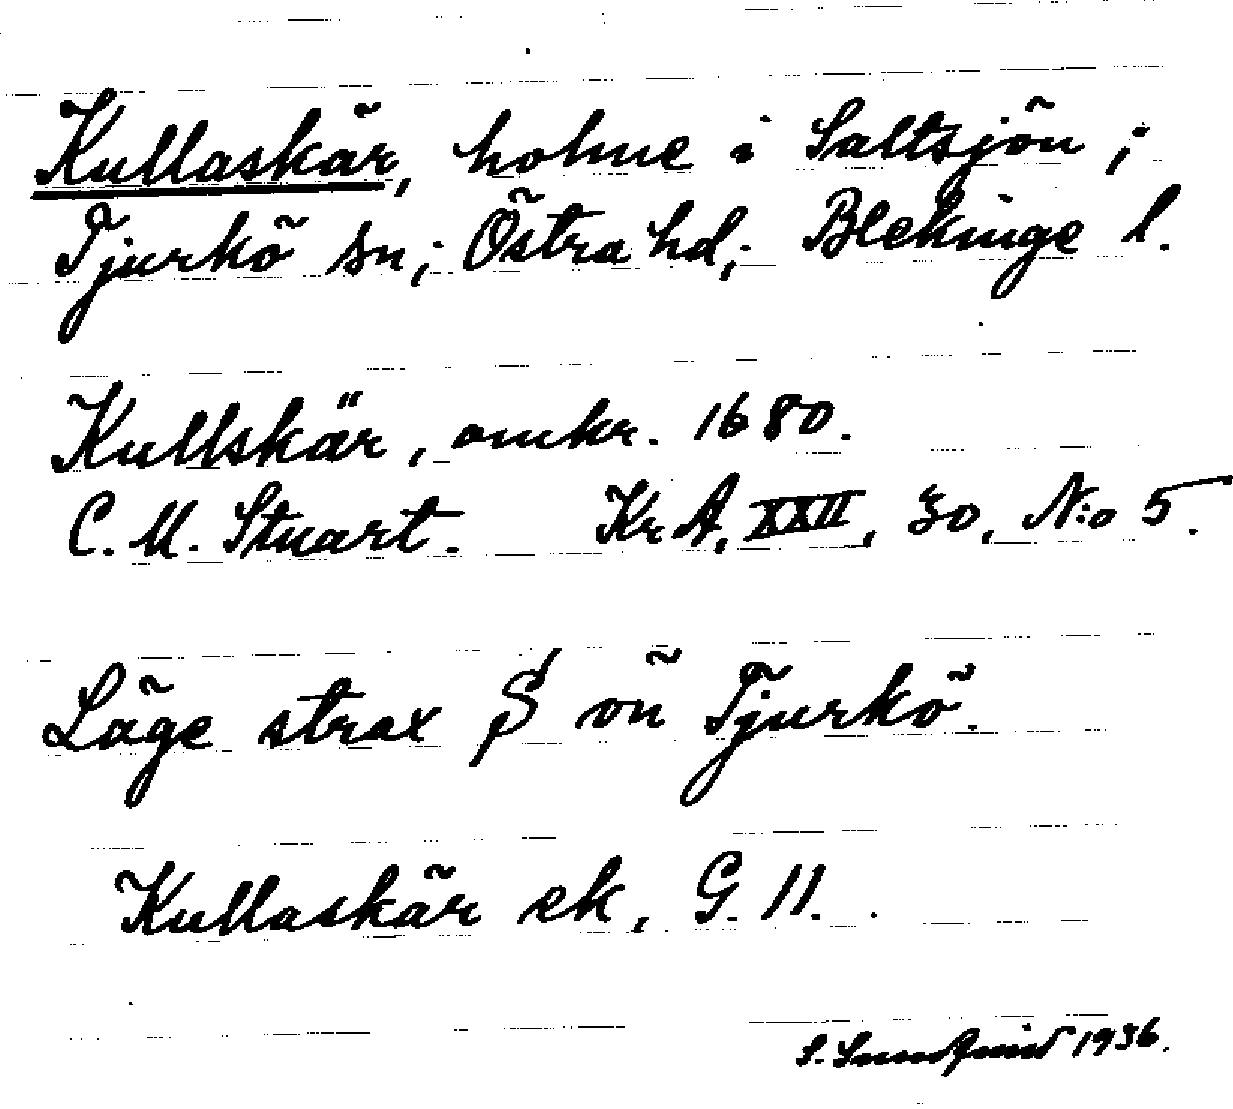 Kullaskär, holme i Saltsjön;
Tjurkö sn; Östra hd; Blekinge l.
Kullskär, omkr. 1680.
C. M. Stuart. Kr A, XXII, 30, N:o 5.
Läge strax S on Tjurkö.
Kullaskär ek, G. 11.
S. Sundqvist 1936.